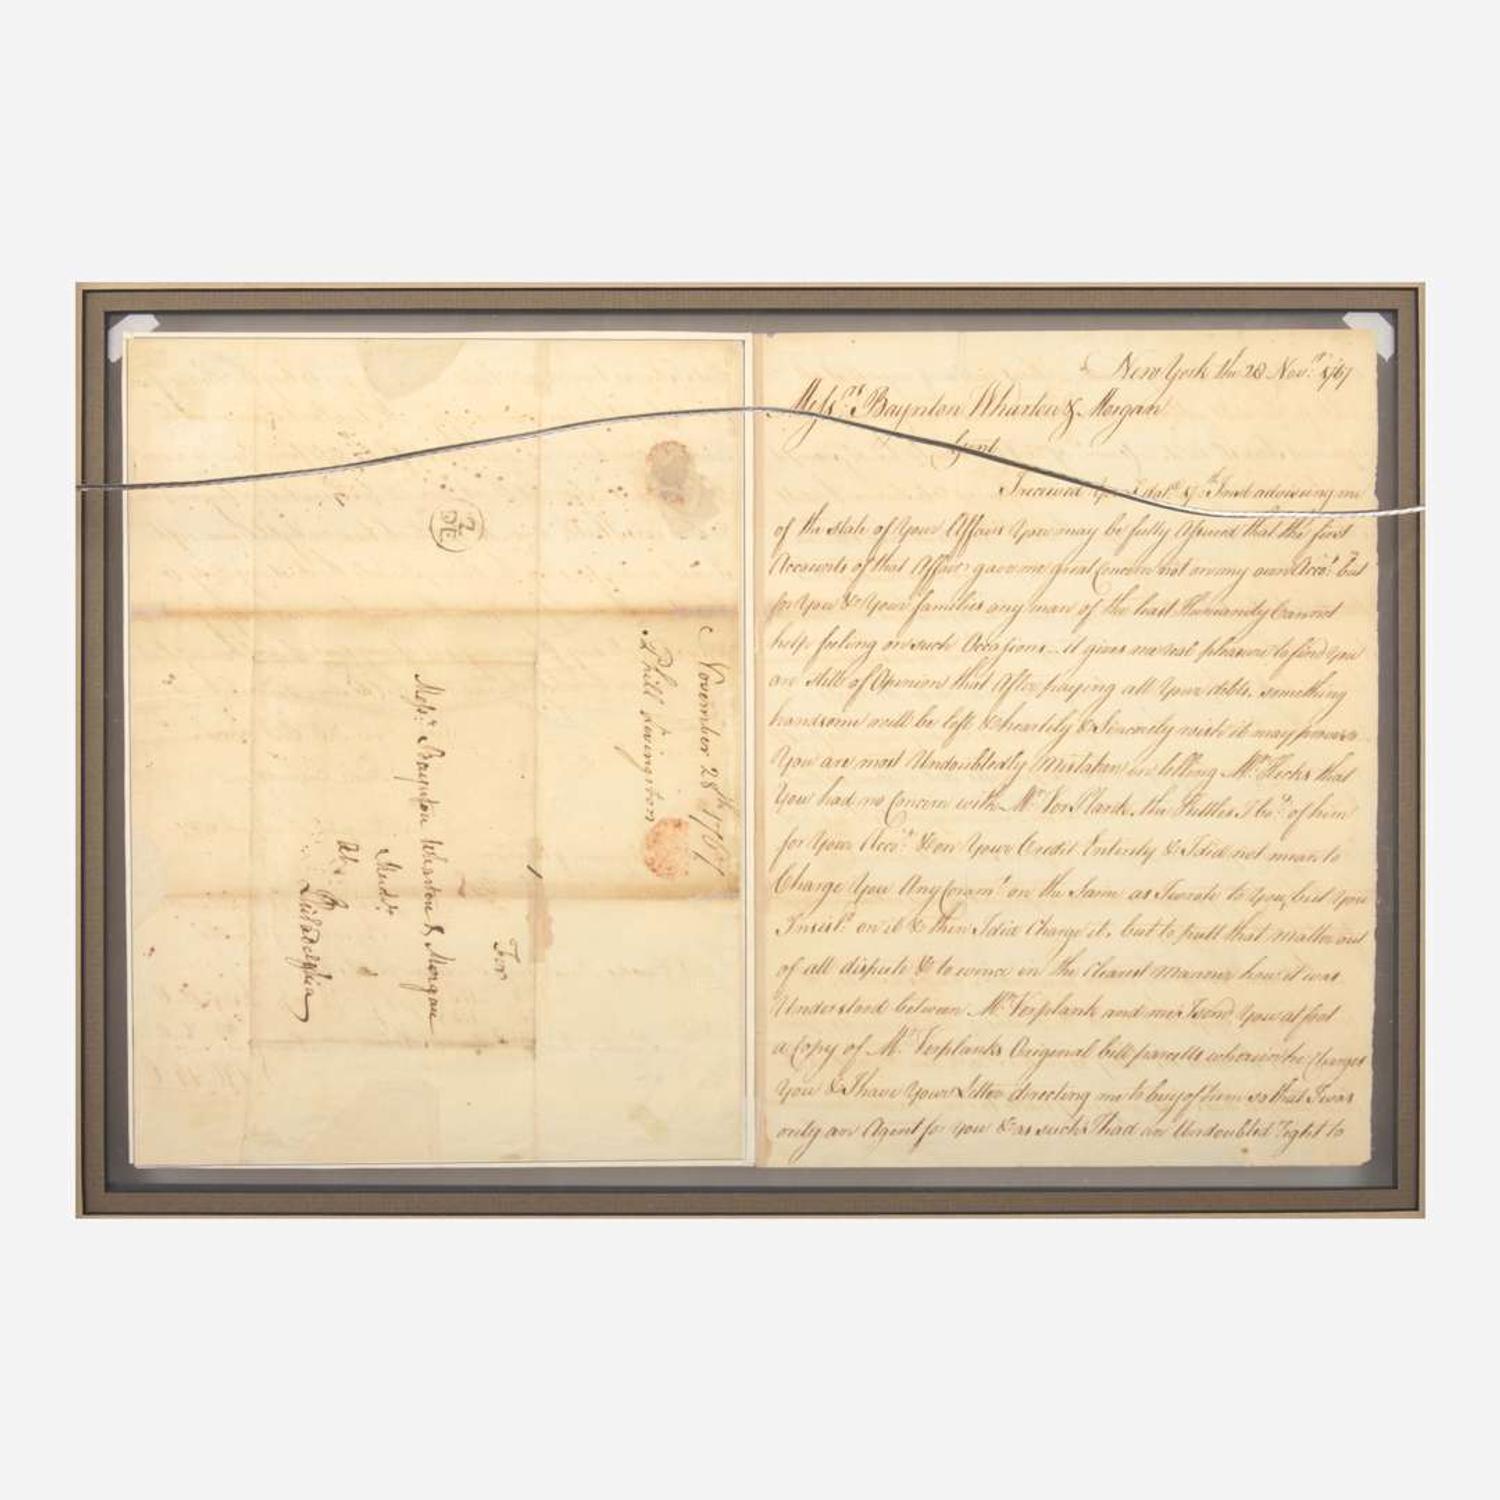 November 28th 1767
Phill Livingston
For
Messrs Baynton Wharton & Morgan
Merdts
Philadelphia
New York the 28 Novr 1767
Messrs Baynton Wharton & Morgan
Gent
I received Yor Favr datd 17th Inst adviseing me
of the state of Your Affairs You may be fully Assured that the first
Accounts of that Affair gave me great Concern not on my own Accot but
for You & Your families any man of the least Humanity Cannot
help feeling on such Occasions - it gives me real pleasure to find you
are still of Opinion that After paying all Your debts, something
handsome will be left & heartily & Sincerely wish it may prove so
You are most Undoubtedly Mistaken in telling Mr Hicks that
You had no Concern with Mr Ver Plank, the Kettles I bot of him
for Your Accot & on Your Credit Entirely & I did not mean to
Charge You Any Comms on the Same as I wrote to You, but You
Insistd on it & then I did Charge it, but to putt that matter out
of all dispute & to evince in the Clearest Manner how it was
Understood between Mr Verplank and me I send You at foot
a Copy of Mr Verplanks Original bill parcells wherein he Charges
You & I have Your Letter directing me to buy of him so that I was
only an Agent for you & as such I had an Undoubted right to